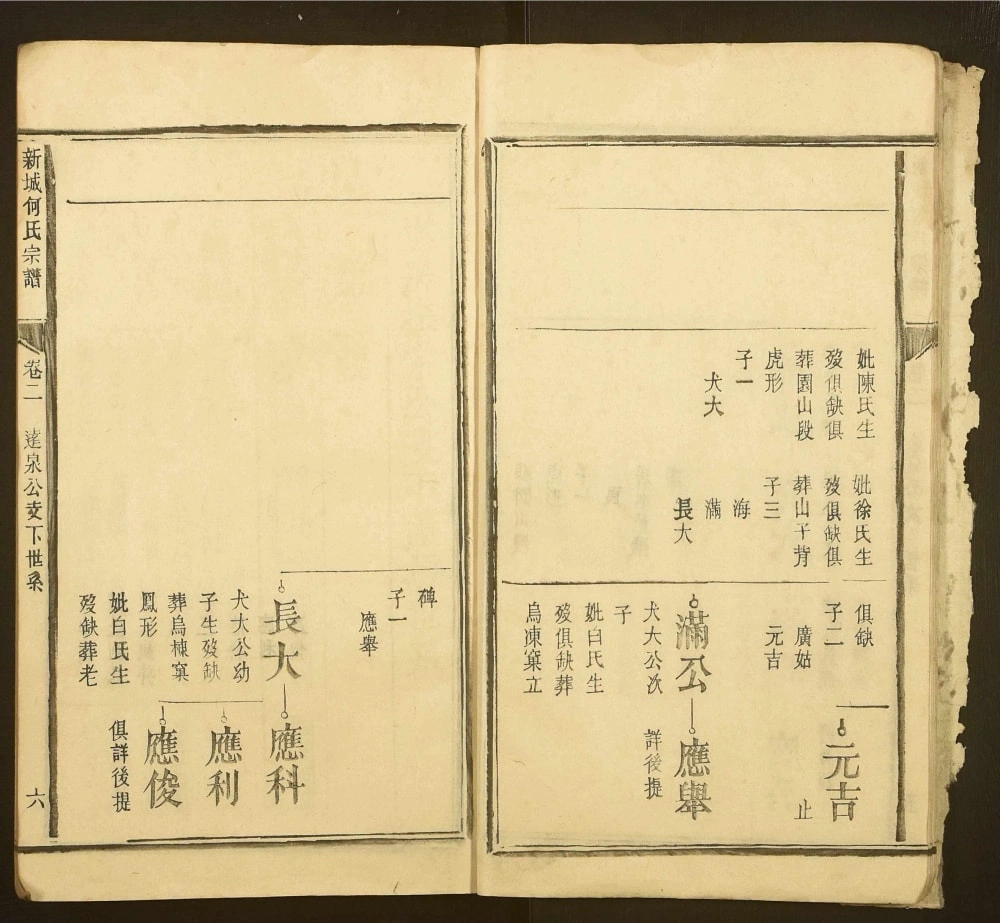 妣陳氏生
歿俱缺俱
葬園山段
虎形
子一
犬大
妣徐氏生
歿俱缺俱
葬山干背
子三
海
滿
長大
俱缺
子二
廣姑
元吉
元吉
止
滿公
犬大公次
子
妣白氏生
歿俱缺葬
烏凍窠立
應舉
詳後提
碑
子一
應舉
長大
犬大公幼
子生歿缺
葬烏棟窠
鳳形
妣白氏生
歿缺葬老
應科
應利
應俊
俱詳後提
新城何氏宗譜
卷二
達泉公支下世系
六